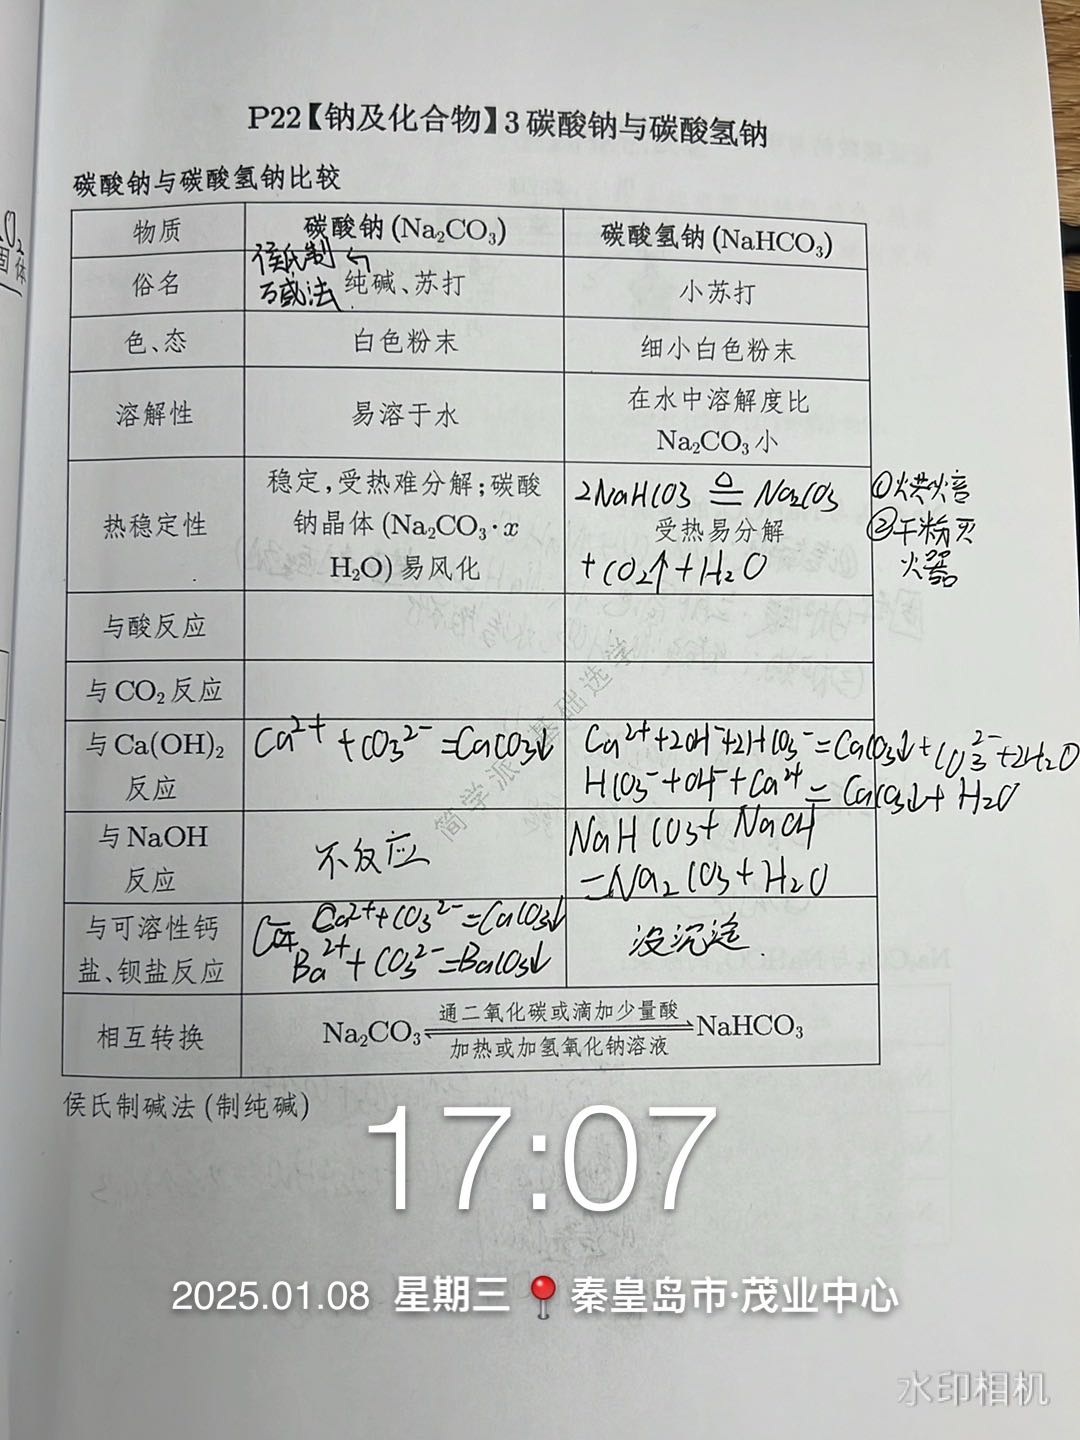 P22【钠及化合物】3 碳酸钠与碳酸氢钠
碳酸钠与碳酸氢钠比较
物质
碳酸钠 (Na₂CO₃)
碳酸氢钠 (NaHCO₃)
俗名
侯氏制
碱法
纯碱、苏打
小苏打
色、态
白色粉末
细小白色粉末
溶解性
易溶于水
在水中溶解度比
Na₂CO₃ 小
热稳定性
稳定，受热难分解；碳酸
钠晶体 (Na₂CO₃·x
H₂O) 易风化
2NaHCO3 ≜ Na2CO3
受热易分解
+CO2↑+H2O
①烘焙
②干粉灭
火器
与酸反应
与 CO₂ 反应
与 Ca(OH)₂
反应
Ca²⁺+CO3²⁻=CaCO3↓
Ca²⁺+2OH⁻+2HCO3⁻=CaCO3↓+CO3²⁻+2H2O
HCO3⁻+OH⁻+Ca²⁺=CaCO3↓+H2O
与 NaOH
反应
不反应
NaHCO3+NaOH
=Na2CO3+H2O
与可溶性钙
盐、钡盐反应
Ca²⁺+CO3²⁻=CaCO3↓
Ba²⁺+CO3²⁻=BaCO3↓
没沉淀
相互转换
Na₂CO₃ 通二氧化碳或滴加少量酸 NaHCO₃
加热或加氢氧化钠溶液
侯氏制碱法 (制纯碱)
简学派基础选学
17:07
2025.01.08 星期三 秦皇岛市·茂业中心
水印相机